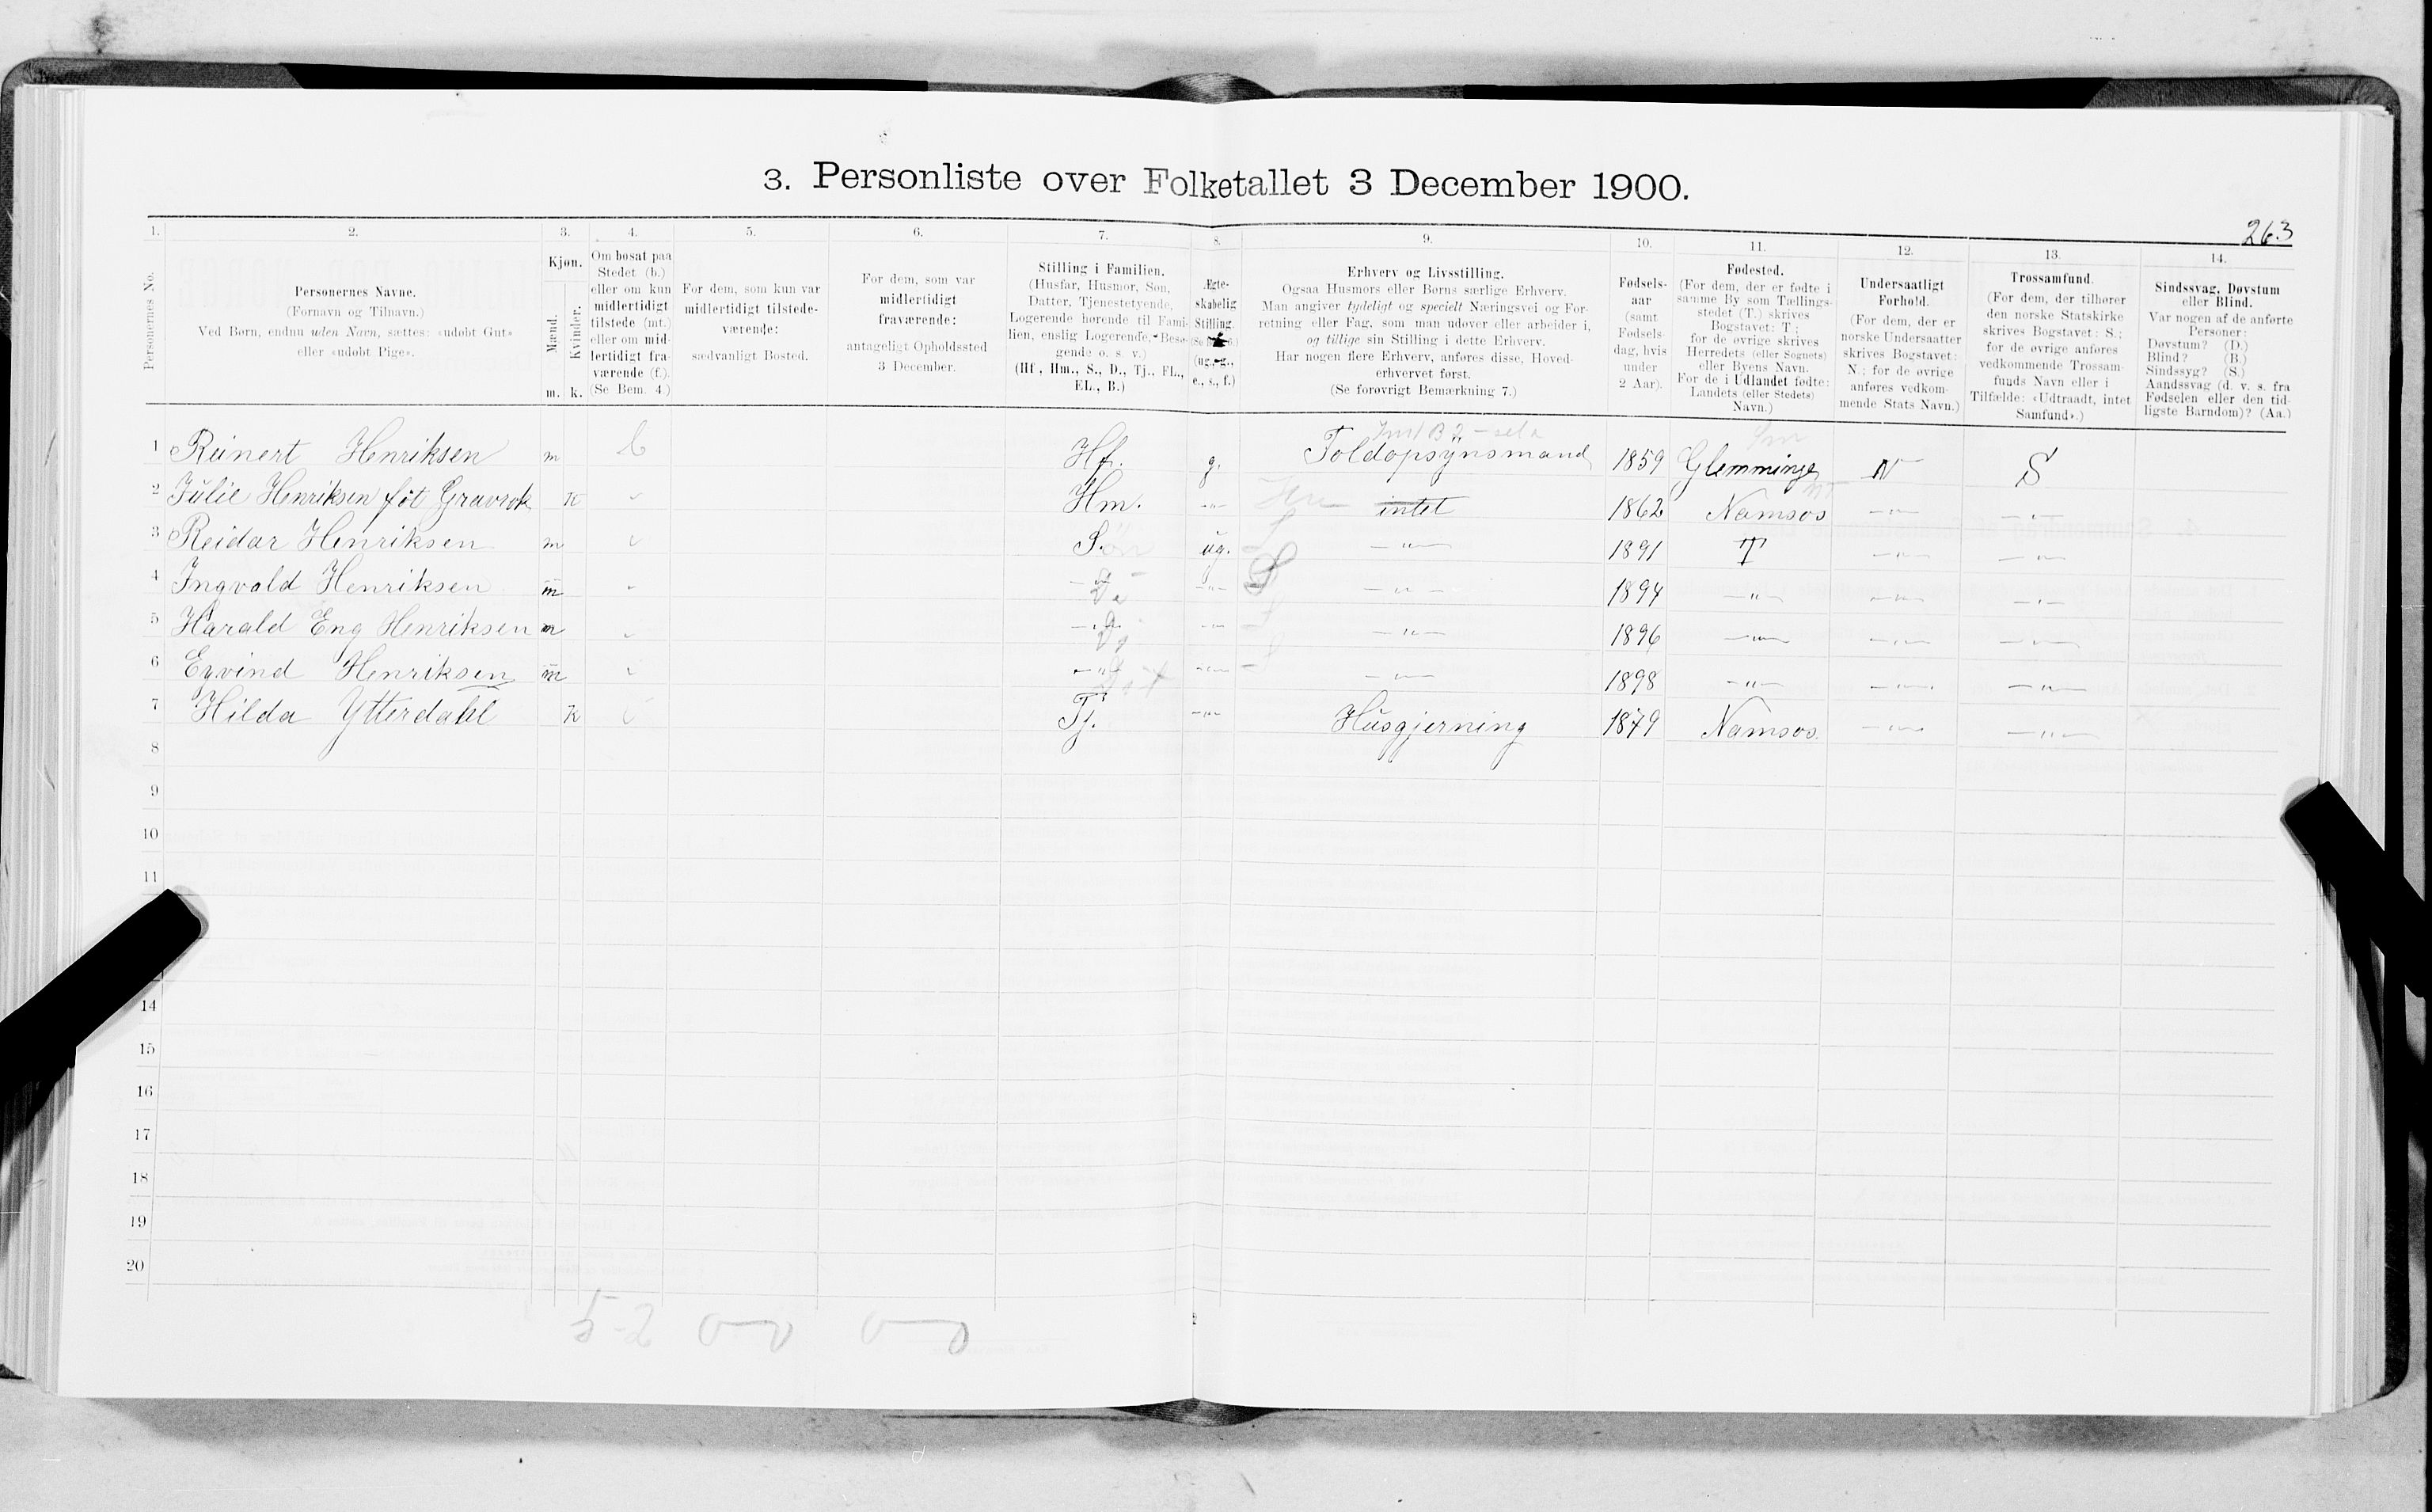 3. Personliste over Folketallet 3 December 1900.
263
1. 2. 3. 4. 5. 6. 7. 8. 9. 10. 11. 12. 13. 14.
Personernes No.
Personernes Navne.
(Fornavn og Tilnavn.)
Ved Børn, endnu uden Navn, sættes: «udøbt Gut»
eller «udøbt Pige».
Kjøn.
Mænd.
Kvinder.
m. k.
Om bosat paa
Stedet (b.)
eller om kun
midlertidigt
tilstede (mt.)
eller om mid-
lertidigt fra-
værende (f.).
(Se Bem. 4.)
For dem, som kun var
midlertidigt tilstede-
værende:
sædvanligt Bosted.
For dem, som var
midlertidigt
fraværende:
antageligt Opholdssted
3 December.
Stilling i Familien.
(Husfar, Husmor, Søn,
Datter, Tjenestetyende,
Logerende hørende til Fami-
lien, enslig Logerende, Besø-
gende o. s. v.)
(Hf., Hm., S., D., Tj., FL.,
EL., B.)
Ægte-
skabelig
Stilling.
(ug., g.,
e., s., f.)
Erhverv og Livsstilling.
Ogsaa Husmors eller Børns særlige Erhverv.
Man angiver tydeligt og specielt Næringsvei og For-
retning eller Fag, som man udøver eller arbeider i,
og tillige sin Stilling i dette Erhverv.
Har nogen flere Erhverv, anføres disse, Hoved-
erhvervet først.
(Se forøvrigt Bemærkning 7.)
Fødsels-
aar
(samt
Fødsels-
dag, hvis
under
2 Aar).
Fødested.
(For dem, der er fødte i
samme By som Tællings-
stedet (T.) skrives
Bogstavet: T.;
for de øvrige skrives
Herredets (eller Sognets)
eller Byens Navn.
For de i Udlandet fødte:
Landets (eller Stedets)
Navn.)
Undersaatligt
Forhold.
(For dem, der er
norske Undersaatter
skrives Bogstavet:
N.; for de øvrige
anføres vedkom-
mende Stats Navn.)
Trossamfund.
(For dem, der tilhører
den norske Statskirke
skrives Bogstavet: S.;
for de øvrige anføres
vedkommende Trossam-
funds Navn eller i
Tilfælde: «Udtraadt, intet
Samfund».)
Sindssvag, Døvstum
eller Blind.
Var nogen af de anførte
Personer:
Døvstum? (D.)
Blind? (B.)
Sindssyg? (S.)
Aandssvag (d. v. s. fra
Fødselen eller den tid-
ligste Barndom)? (Aa.)
1 Reinert Henriksen m b Hf. g. Toldopsynsmand 1859 Glemminge N S
2 Julie Henriksen føt Gravrok k Hm. -"- intet 1862 Namsos -"- -"-
3 Reidar Henriksen m S. ug. -"- 1891 T -"- -"-
4 Ingvald Henriksen m -"- -"- -"- 1894 -"- -"- -"-
5 Harald Eng Henriksen m -"- -"- -"- 1896 -"- -"- -"-
6 Eyvind Henriksen m -"- -"- -"- 1898 -"- -"- -"-
7 Hilda Ytterdahl k Tj. -"- Husgjerning 1879 Namsos. -"- -"-
8
9
10
11
14
15
16
17
18
19
20
5-2 0-0 0-0
2